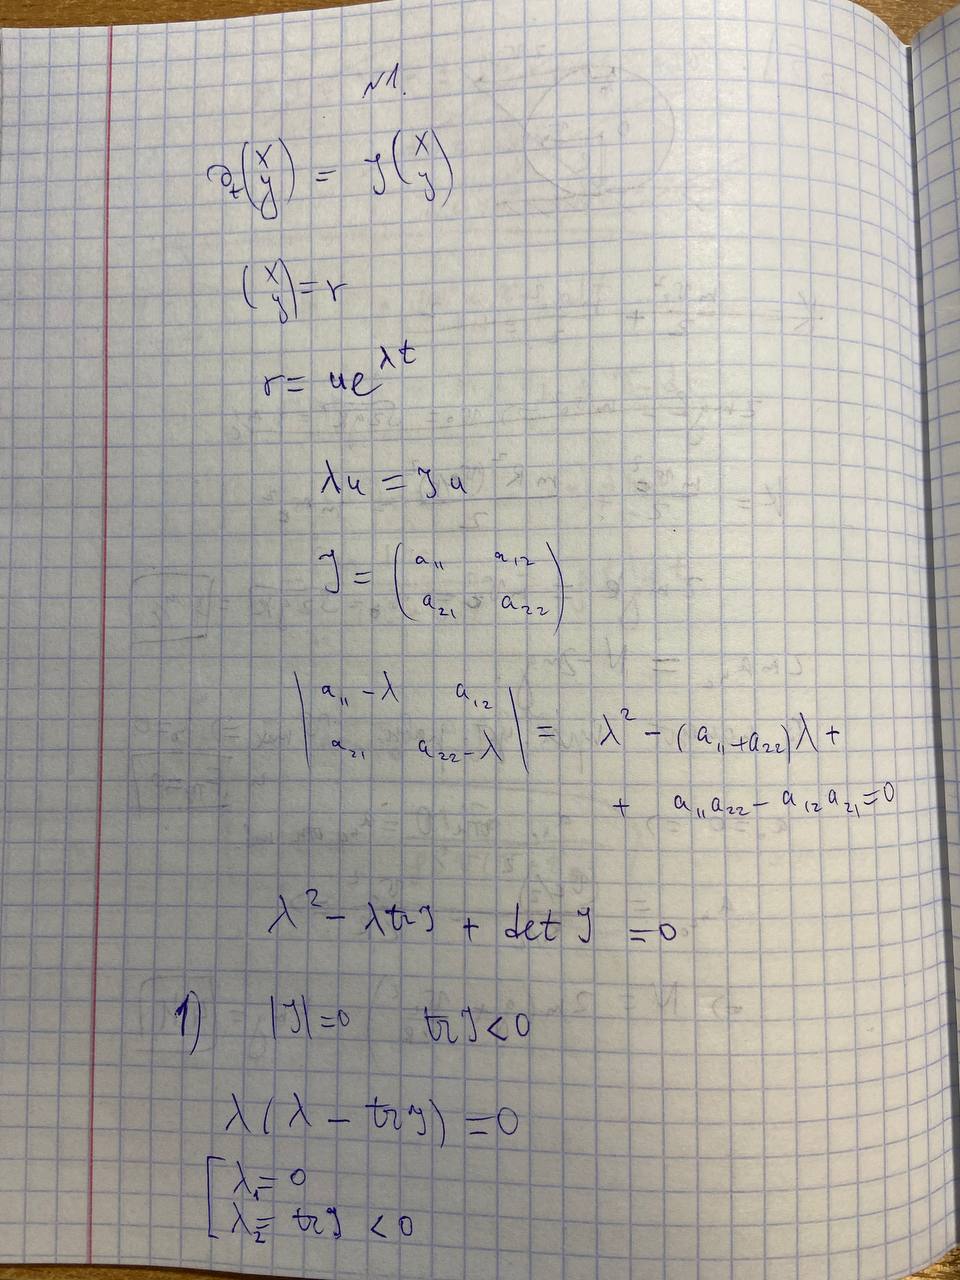 №1.
∂ₜ(x y) = J(x y)
(x y) = r
r = ue^{λt}
λu = Ju
J = (a₁₁ a₁₂ a₂₁ a₂₂)
|a₁₁-λ a₁₂ a₂₁ a₂₂-λ| = λ² - (a₁₁+a₂₂)λ +
+ a₁₁a₂₂ - a₁₂a₂₁ = 0
λ² - λtrJ + det J = 0
1) |J|=0 trJ<0
λ(λ - trJ) = 0
[λ₁ = 0
λ₂ = trJ < 0